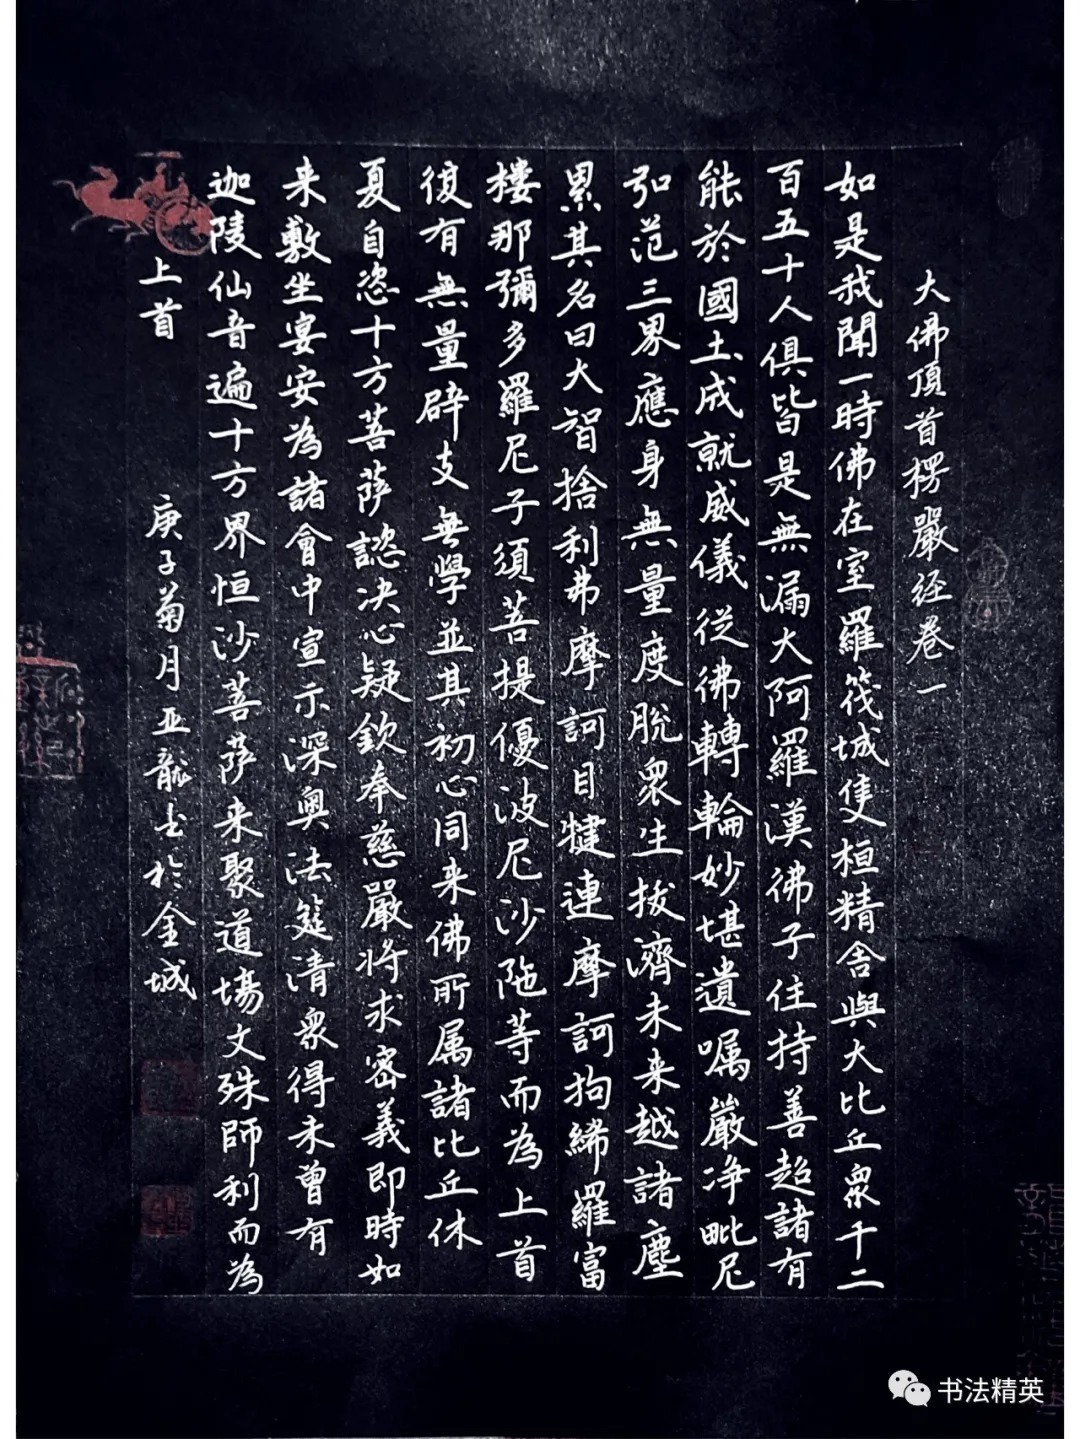 大佛頂首楞嚴经卷一
如是我聞一時佛在室羅筏城隻桓精舍與大比丘衆千二
百五十人俱皆是無漏大阿羅漢佛子住持善超諸有
能於國土成就威儀從佛轉輪妙堪遺嘱嚴净毗尼
弘范三界應身無量度脫衆生拔濟未来越諸塵
累其名曰大智捨利弗摩訶目犍連摩訶拘絺羅富
樓那彌多羅尼子須菩提優波尼沙陁等而為上首
復有無量辟支無學並其初心同来佛所属諸比丘休
夏自恣十方菩萨諮决心疑欽奉慈嚴将求密義即時如
来敷坐宴安為諸會中宣示深奥法筵清衆得未曾有
迦陵仙音遍十方界恒沙菩萨来聚道場文殊師利而為
上首
庚子菊月亚龍书於金城
书法精英